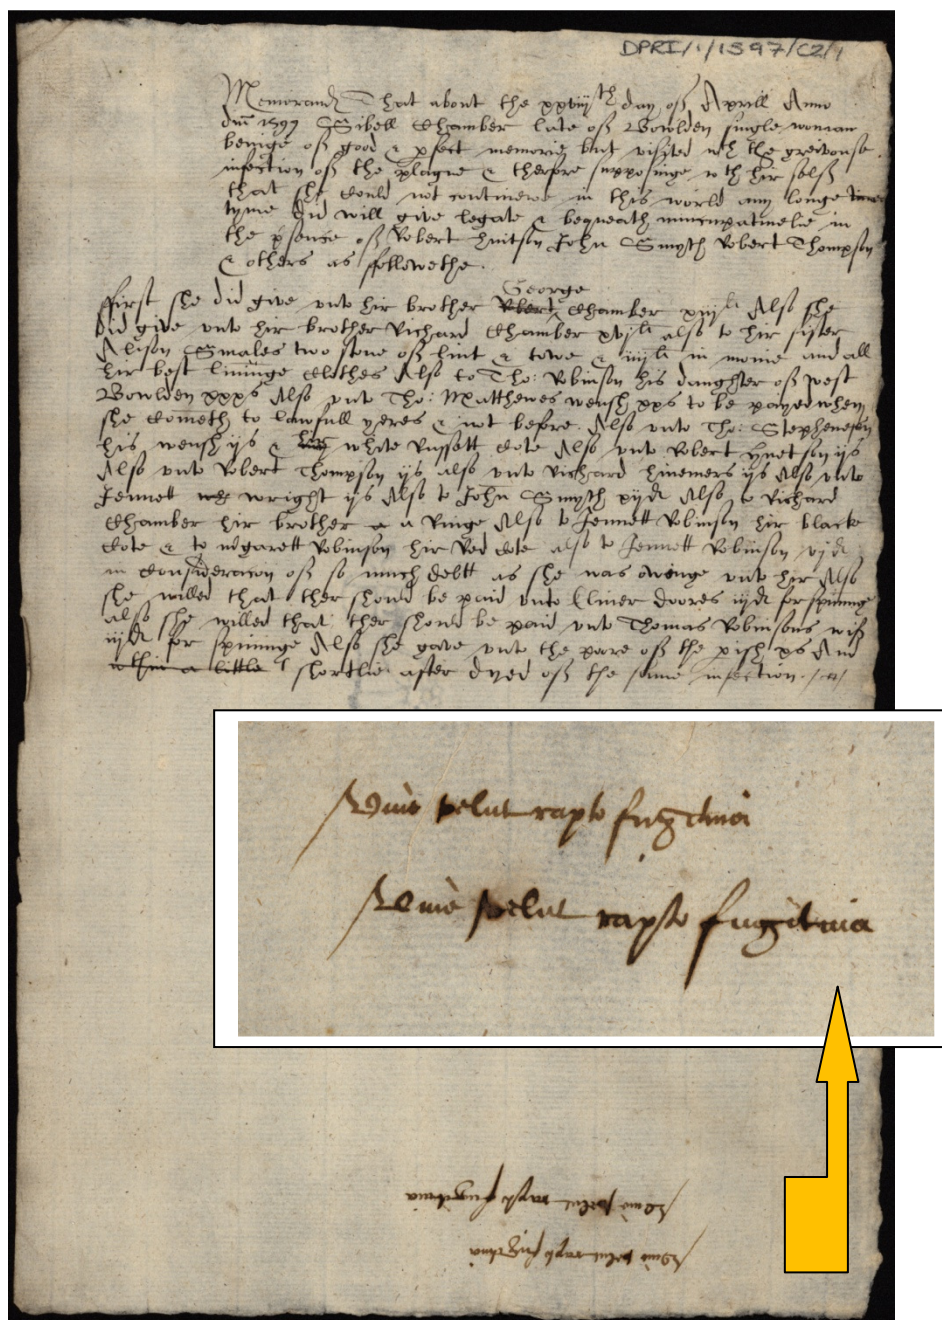 DPRI/1/1597/C2/1
Memorand That about the xxviijth day of Aprill Anno
dni 1597 Sibell Chamber late of Bowlden single woman
beinge of good & pfect memorie but visited wth the greivouse
infection of the plague & therfore supposinge wth hir self
that she could not continewe in this world any longe
tyme did will give legate & bequeath nuncupativelie in
the psence of Robert huitson John Smyth Robert Thompson
& others as followethe.
George
ffirst she did give vnto hir brother Robert Chamber Also she
did give vnto hir brother Richard Chamber also to hir sister
Alison Smales two stone of lint & towe & iiijli in monie and all
hir best lininge clothes Also to Tho: Robinson his daughter of west
Bowlden xxxs Also vnto Tho: Matthewes wensh xxs to be payed when
she cometh to lawfull yeres & not before. Also vnto Tho: Stephenson
his wensh ijs & hir white russett cote Also vnto Robert hewetson ijs
Also vnto Robert Thompson ijs also vnto Richard ijs Also vnto
Jennett wright ijs Also to John Smyth xijd Also to Richard
Chamber hir brother a a Ringe Also to Jennett Robinson hir blacke
cote & to mgarett Robinson hir Red cote also to Jennett Robinson vjd
in consideracion of so much debtt as she was owinge vnto hir Also
she willed that ther should be paid vnto Elliner doores iijd for spininge
also she willed that ther shoud be paid vnto Thomas Robinsons wife
iijd for spininge Also she gave vnto the pore of the pish xs And
within a little shortlie after dyed of the same infection.
Quie velut rapto fugitiua
Quie velut rapto fugitiua
Quie velut rapto fugitiua
Quie velut rapto fugitiua